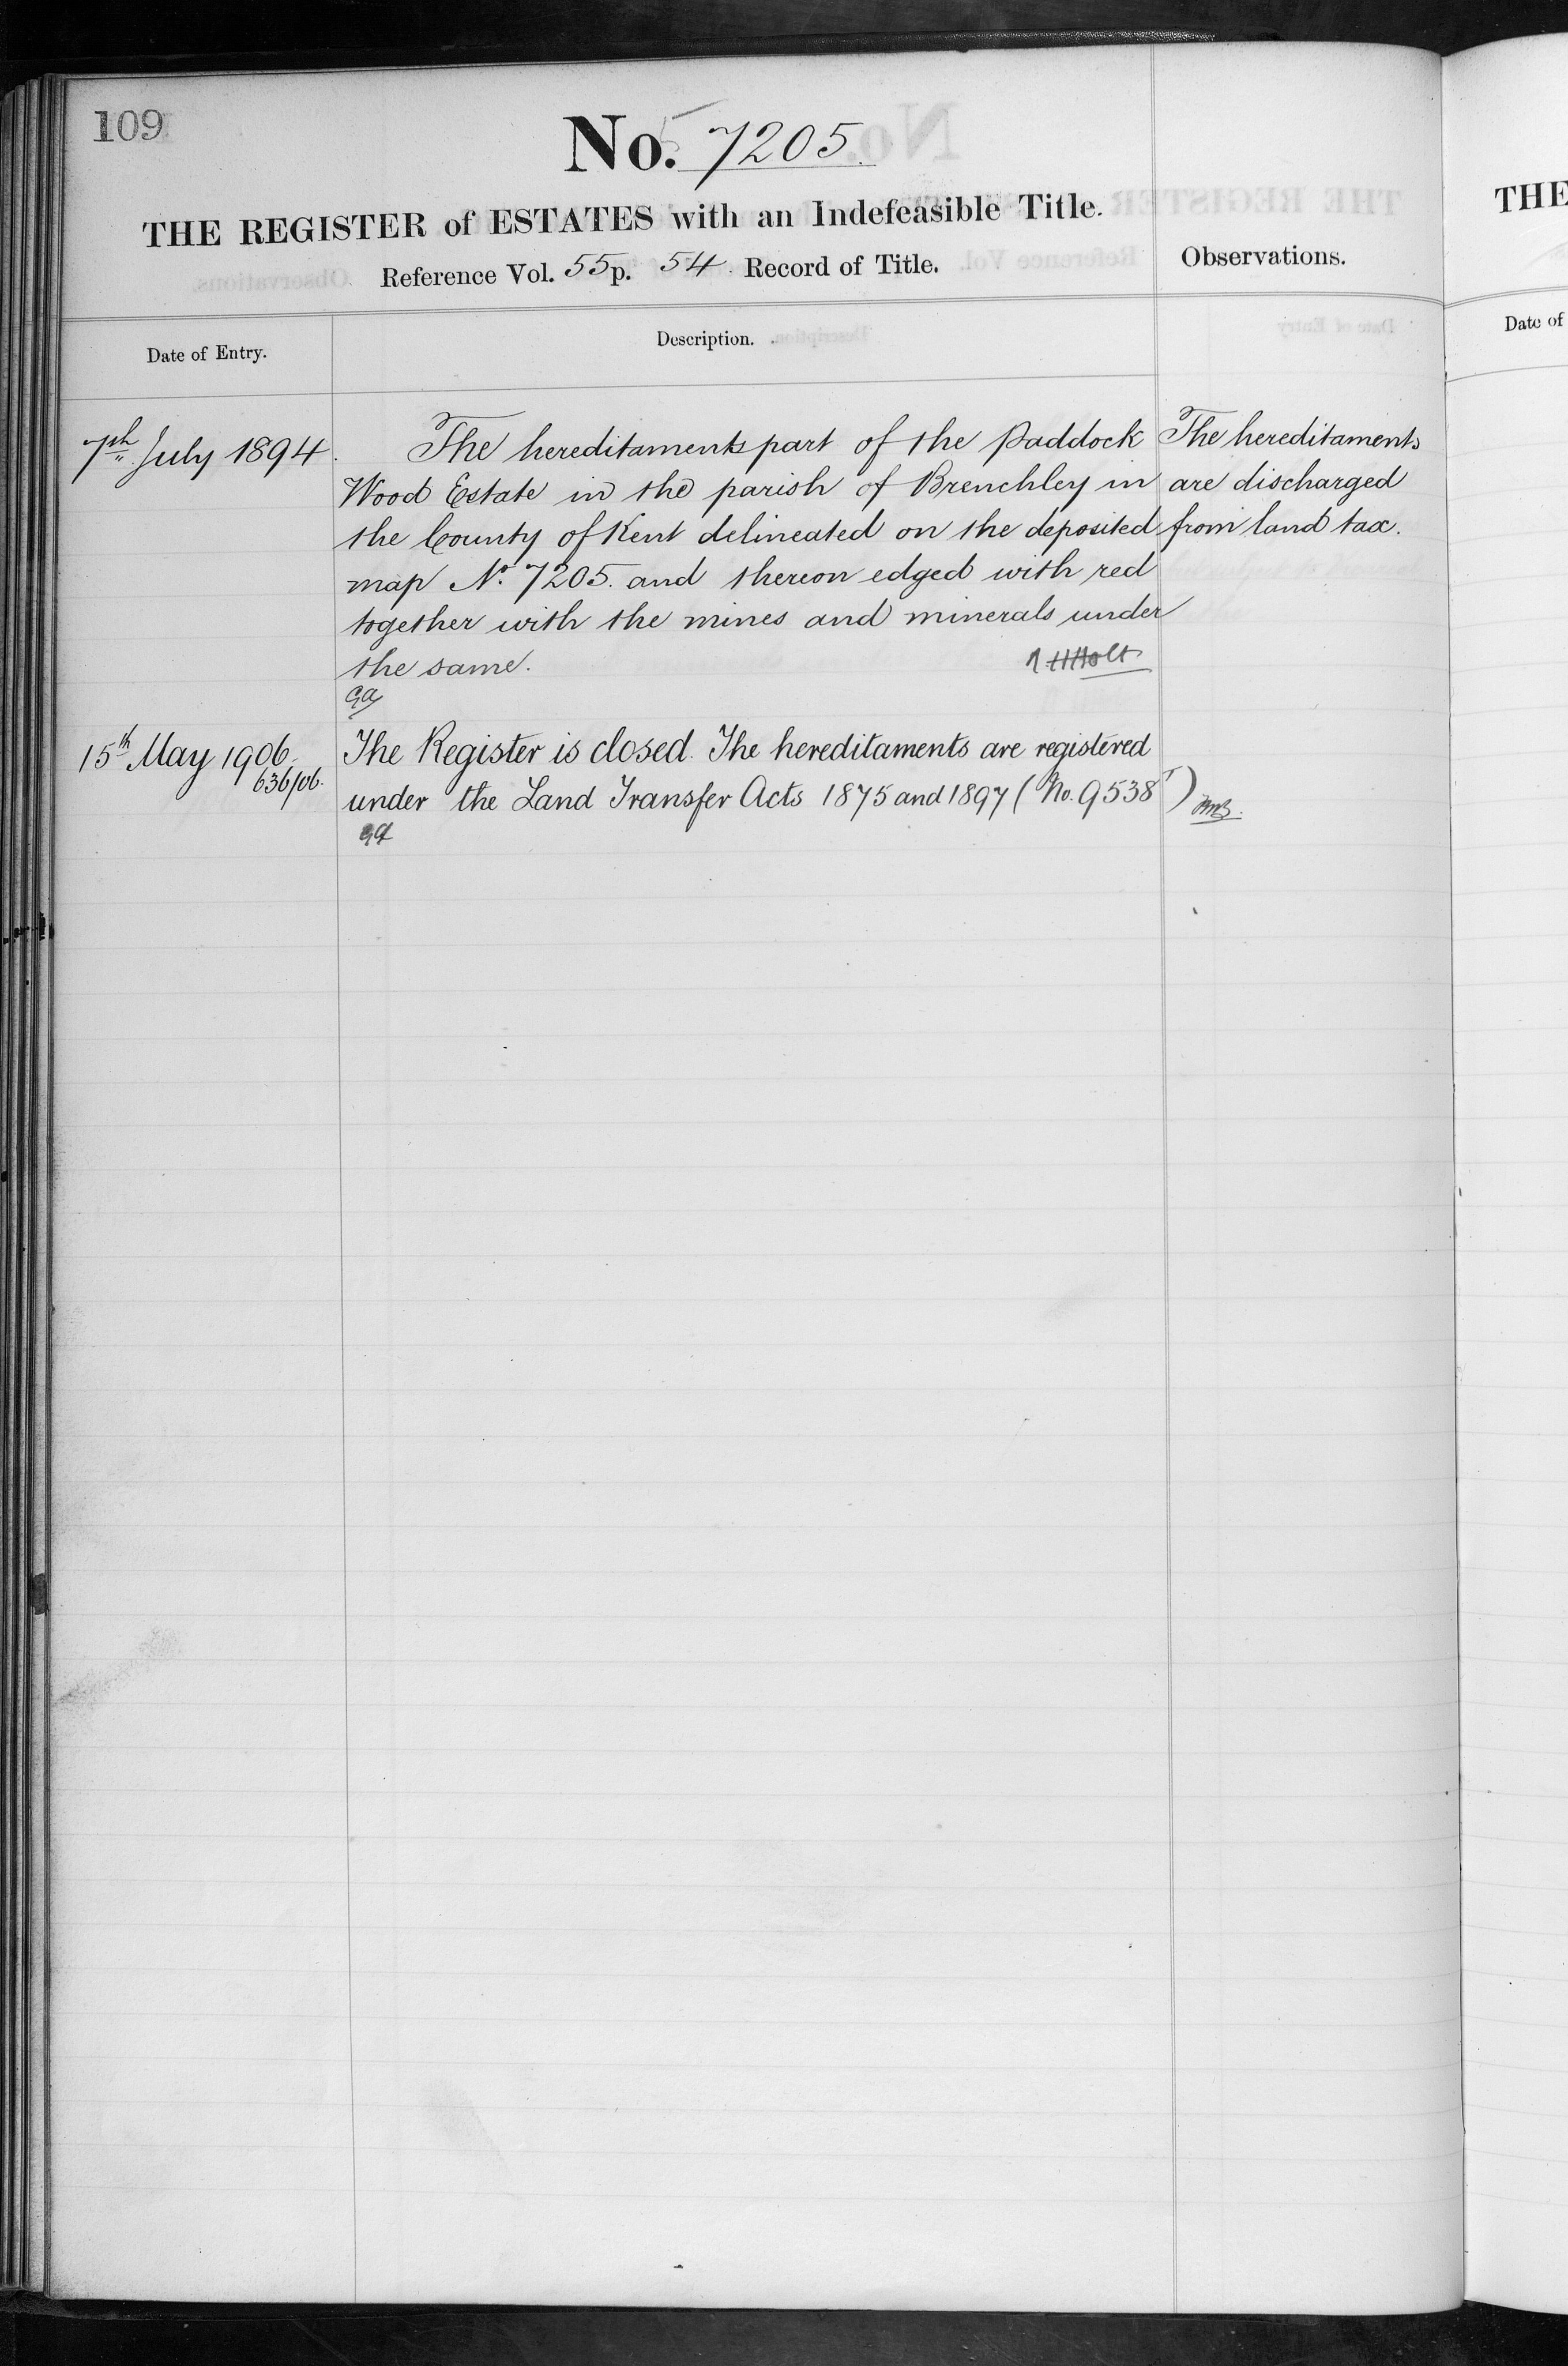 109
No. 7205.
THE REGISTER of ESTATES with an Indefeasible Title.
Reference Vol. 55 p. 54. Record of Title.
Observations.
Date of Entry.
Description.
7th July 1894.
The hereditaments part of the Paddock
Wood Estate in the parish of Brenchley in
the County of Kent delineated on the deposited
map No. 7205. and thereon edged with red
together with the mines and minerals under
the same.
Holt
The hereditaments
are discharged
from land tax.
15th May 1906.
636/06.
The Register is closed. The hereditaments are registered
under the Land Transfer Acts 1875 and 1897 (No. 9538)
THE
Date of